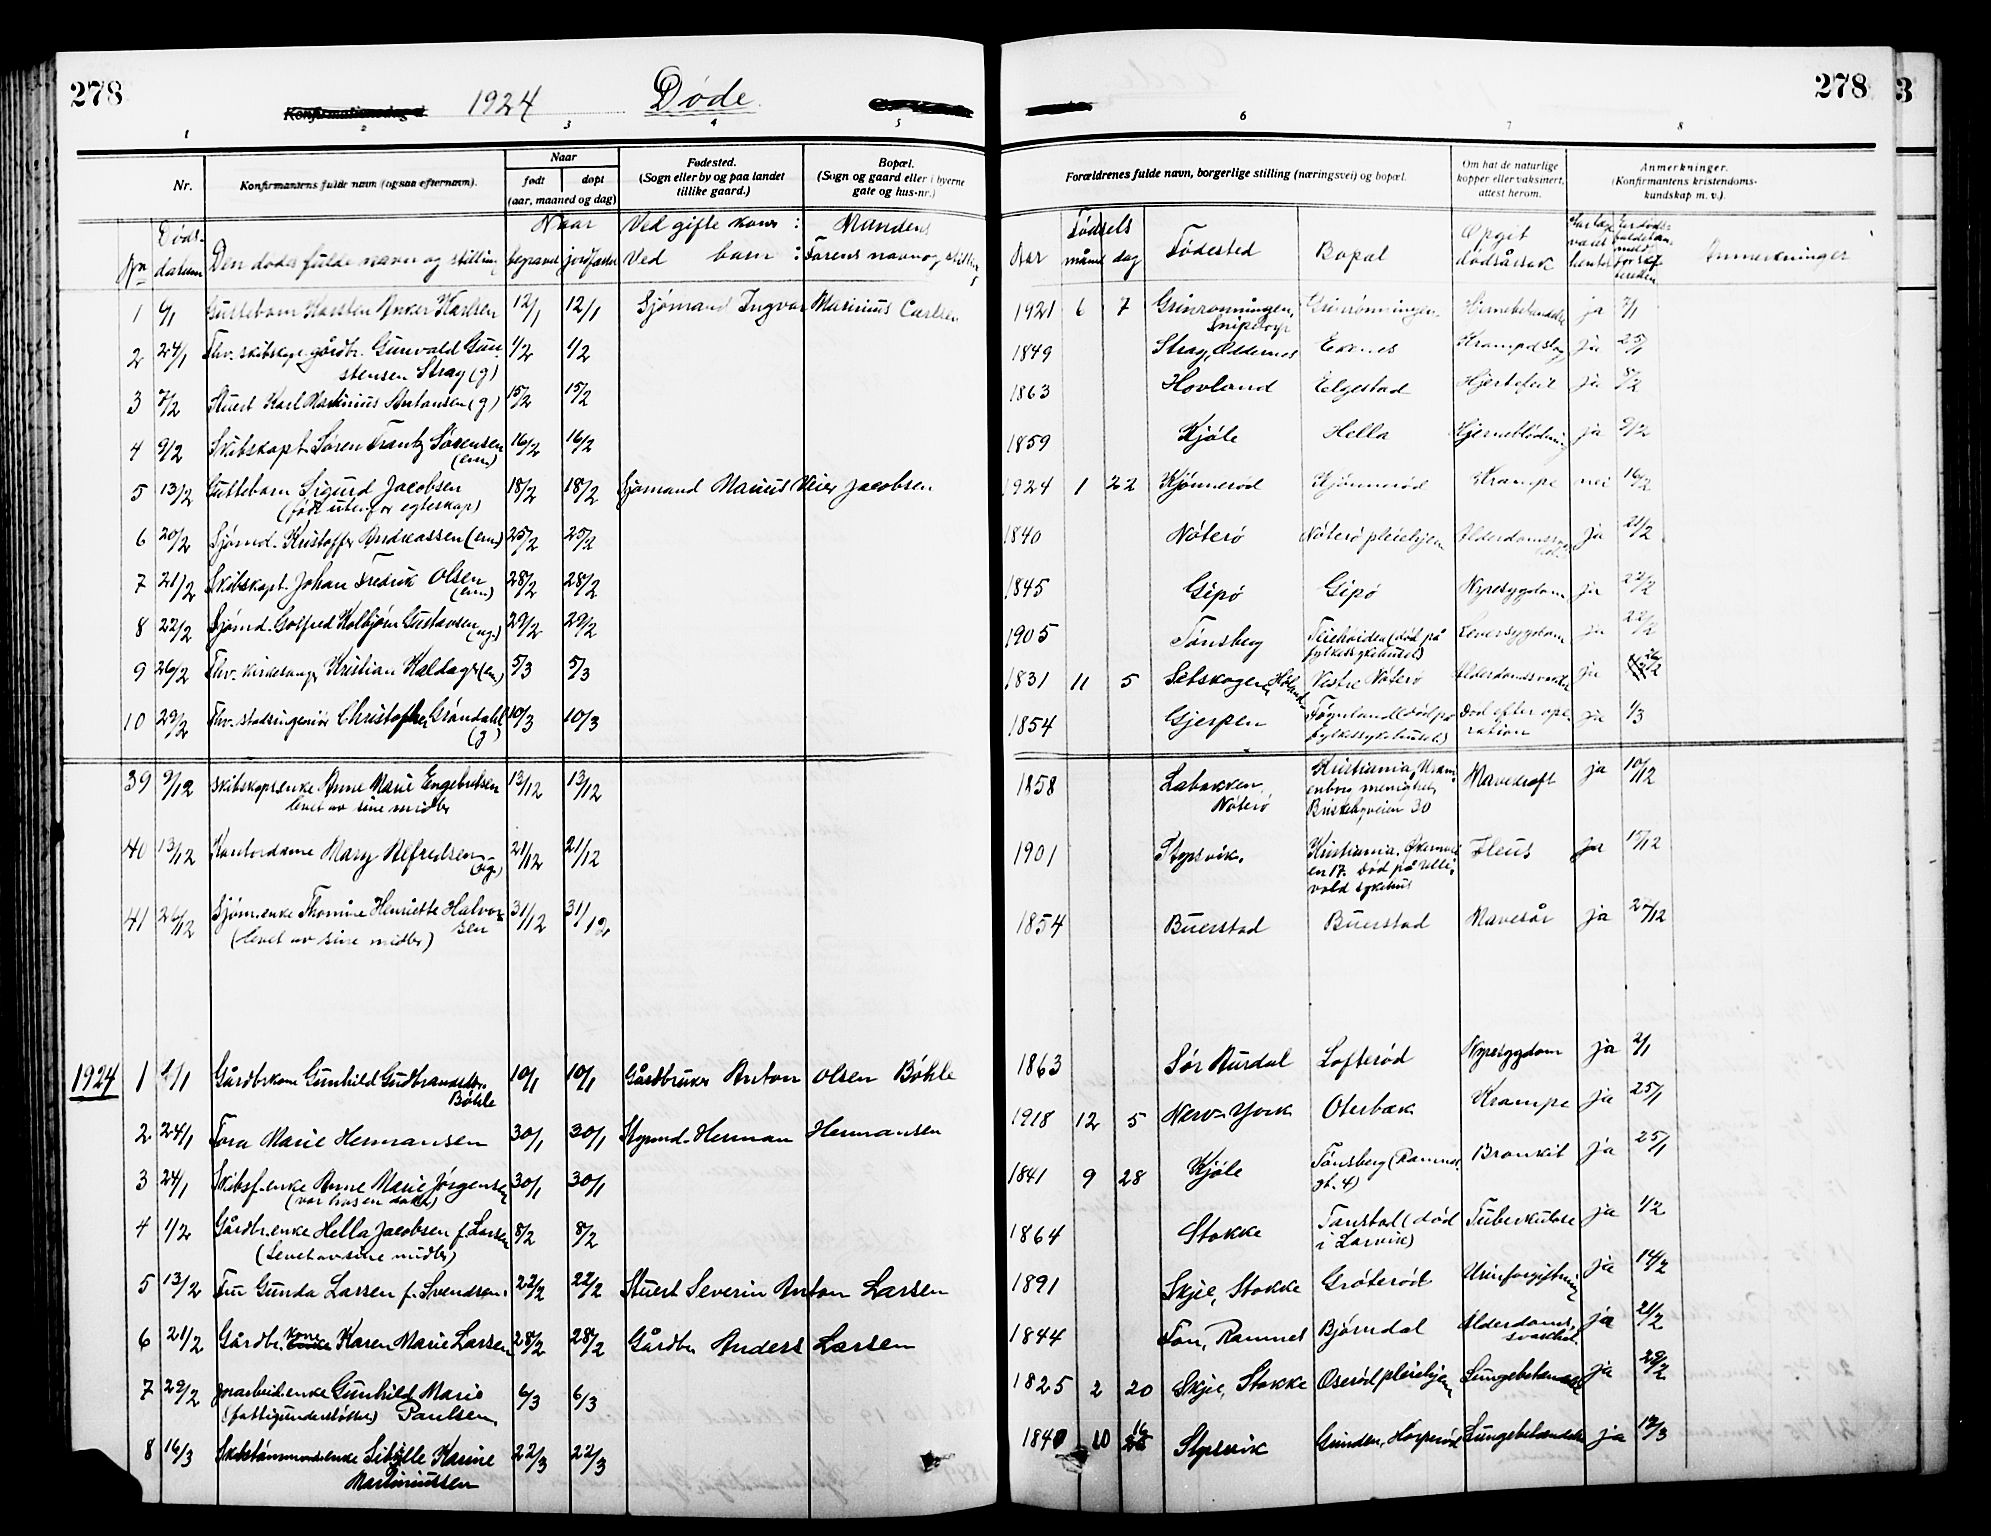 278
Konfirmationsdag d. 1924 Døde.
278
3
1 2 3 4 5 6 7 8
Nr.
Konfirmantens fulde navn (og saa efternavn).
Naar
født døpt
(aar, maaned og dag)
Fødested.
(Sogn eller by og paa landet
tillike gaard.)
Bopæl.
(Sogn og gaard eller i byerne
gate og hus-nr.)
Forældrenes fulde navn, borgerlige stilling (næringsvei) og bopæl.
Om hat de naturlige
kopper eller vaksinert,
attest herom.
Anmerkninger.
(Konfirmantens kristendoms-
kundskap m. v.).
Nr. Døds-
datum Den dødes fulde navn og stilling
Naar
begravet jordfæstet
Ved gifte koner: Mandens
Ved barn: Farens navn og stilling
Aar Fødsels
måned dag Fødested Bopæl Opgit
dødsårsak Anmerkninger
1 6/1 Guttebarn Karsten Anker Karlsen 12/1 12/1 Sjømand Ingvar Marinius Carlsen 1921 6 7 Grinrønningen, Grinrønningen ja 7/1
2 24/1 Fhv. skibskapt. gårdbr. Gunvald Gun-
stensen Strag (g) 1/2 1/2 1849 Strag, Oddernes Ekenes ja 25/1
3 7/2 Stuert Karl Martinius Antonsen (g) 15/2 15/2 1863 Hovland Elgestad Hjertefeil ja 8/2
4 9/2 Skibskapt. Søren Frantz Sørensen
(enm) 16/2 16/2 1859 Kjøle Hella Hjerneblødning ja 9/2
5 13/2 Guttebarn Sigurd Jacobsen
(født utenfor egteskap) 18/2 18/2 Sjømand Marius Meier Jacobsen 1924 1 22 Kjønnerød Kjønnerød Krampe nei 16/2
6 20/2 Sjømd. Kristoffer Andreassen (enm) 25/2 25/2 1840 Nøterø Nøterø pleiehjem ja 21/2
7 21/2 Skibskapt. Johan Fredrik Olsen
(enm) 28/2 28/2 1845 Gipø Gipø Nyresygdom ja 22/2
8 22/2 Sjømd. Gotfred Kolbjørn Gustavsen
(ug.) 29/2 29/2 1905 Tønsberg Teieheiden (død på
fylkessykehuset) Leversygdom ja 22/2
9 26/2 Fhv. kirkesanger Kristian Kaldager (em) 5/3 5/3 1831 11 5 Setskogen, Høland Vestre Nøterø Alderdomssvakhet ja
10 29/2 Fhv. stadsingeniør Christopher Grøndahl
(g) 10/3 10/3 1854 Gjerpen Føynland (død på
fylkessykehuset) Død efter ope-
ration ja 1/3
39 9/12 Skibskapt.enke Anne Marie Engebretsen
levet av sine midler 13/12 13/12 1858 Labakken,
Nøterø Kristiania, Urani-
enborg menighet,
Briskebyveien 30 Mavekræft ja 10/12
40 13/12 Kontordame Mary Alfredsen
(ug.) 21/12 21/12 1901 Stopsvik. Kristiania,
en 17. Død på Ulle-
vold sykehus Ileus ja 15/12
41 26/12 Sjøm.enke Thomine Henriette Halvor-
sen
(levet av sine midler) 31/12 31/12 1854 Buerstad Buerstad Mavesår ja 27/12
1924 1 Gårdbr.kone Gunhild Gudbrandsdtr.
Bøhle 10/1 10/1 Gårdbruker Anton Olsen Bøhle 1863 Sør Aurdal Lofterød Nyresygdom ja 2/1
2 24/1 Tora Marie Hermansen 30/1 30/1 Styrmd. Herman Hermansen 1918 12 5 New-York Oterbæk Krampe ja 25/1
3 24/1 Skibsf.enke Anne Marie Jørgensen
(var hos en datter) 30/1 30/1 1841 9 28 Kjøle Tønsberg (Ramnes
gt. 4) Bronkit ja 25/1
4 1/2 Gårdbr.enke Hella Jacobsen f. Larsen
(Levet av sine midler) 8/2 8/2 1864 Stokke Tanstad (død
i Larvik) Tuberkulose ja 1/2
5 13/2 Fru Gunda Larsen f. Svendsen. 22/2 22/2 Stuert Severin Anton Larsen 1891 Skjee, Stokke Grøterød Urinforgiftning ja 14/2
6 21/2 Gårdbr. kone Karen Marie Larsen 28/2 28/2 Gårdbr. Anders Larsen 1844 Fon, Ramnes Bjørndal Alderdoms,
svakhet ja 21/2
7 29/2 Jorarbeid.enke Gunhild Marie
(fattigunderstøttet) Paulsen, 6/3 6/3 1825 2 20 Skjee, Stokke Oserød pleiehjem Lungebetændelse ja 29/2
8 16/3 Skibstømmermandsenke Sibille Karine
Martiniussen 22/3 22/3 1840 10 16 Stopsvik Grinden, Lungebetændelse ja